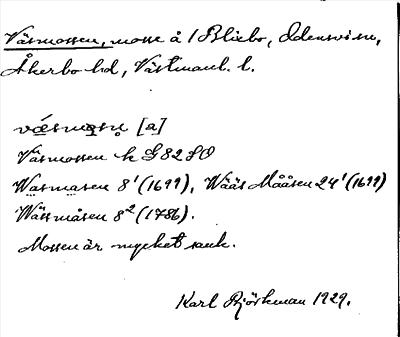 Väsmossen, mosse å 1 Bliebo, Odensvi sn,
Åkerbo hd, Västmanl. l.
væsmɑsn̥ [a]
Väsmossen k G82SO
Wäsmasen 8¹ (1699), Wääs Måå̊sen 24¹ (1699)
Wässmåsen 8² (1786).
Mossen är mycket sank.
Karl Björkman 1929.